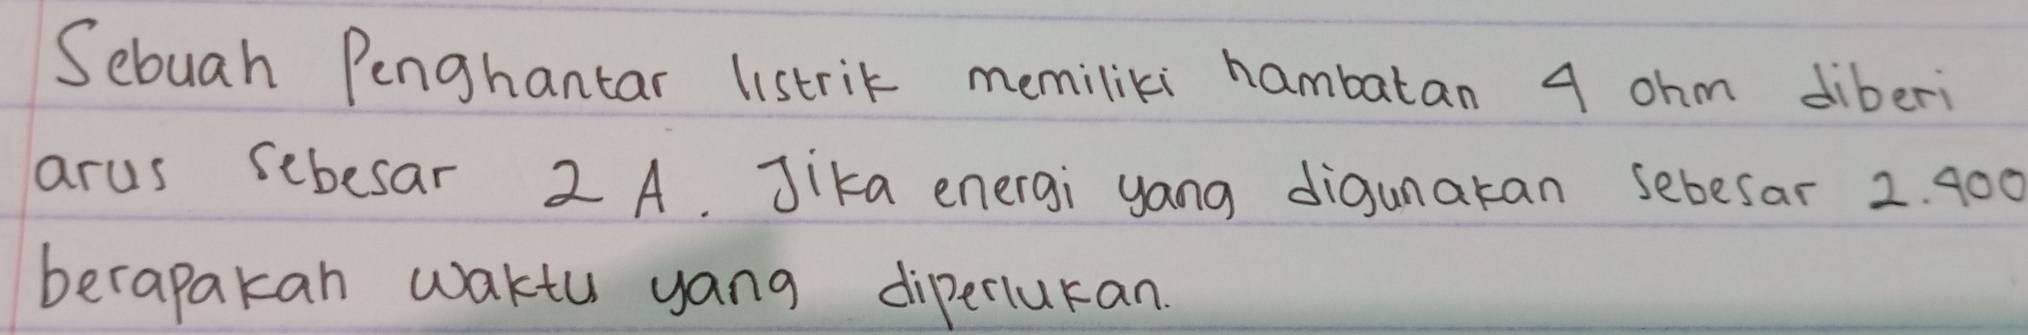 Sebuah Penghantar listrik memiliki hambatan 4 ohm diberi
arus sebesar 2 A. Jika energi yang digunakan sebesar 2.400
berapakah waktu yang diperlukan.